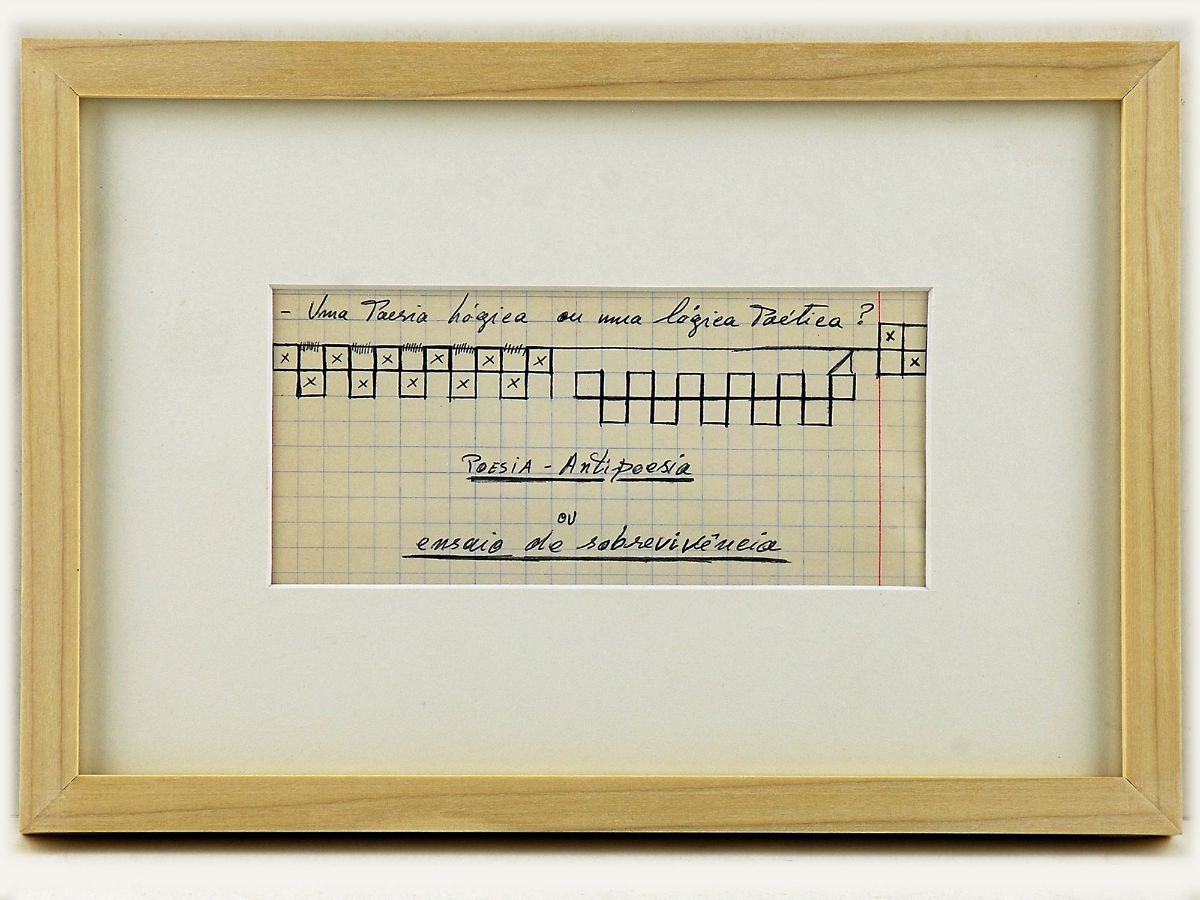 - Uma Poesia Lógica ou uma lógica Poética ?
x x x x x x x
x x x x x x
POESIA - Antipoesia
ou
ensaio de sobrevivência